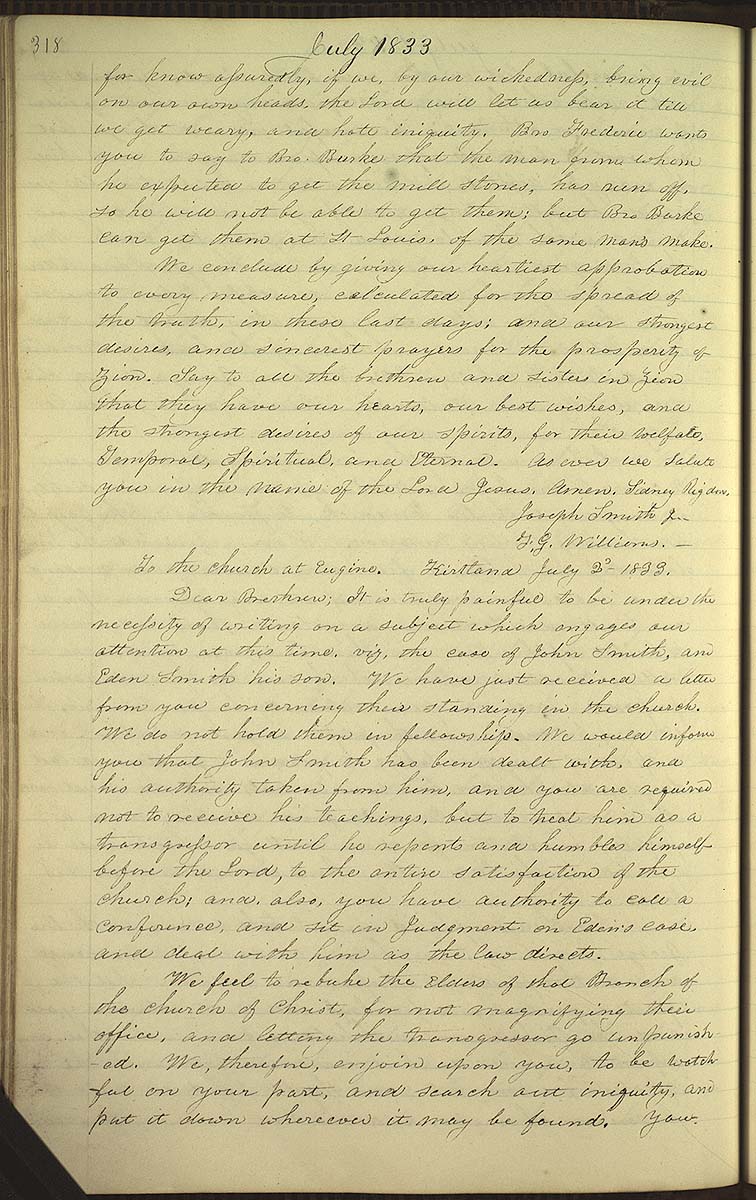 318
July 1833
for know assuredly, if we, by our wickedness, bring evil
on our own heads, the Lord will let us bear it till
we get weary, and hate iniquity. Bro Frederic wants
you to say to Bro. Burke that the man from whom
he expected to get the mill stones, has run off,
so he will not be able to get them; but Bro Burke
can get them at St Louis, of the same mans make.
We conclude by giving our heartiest approbation
to every measure, calculated for the spread of
the truth, in these last days; and our strongest
desires, and sincerest prayers for the prosperity of
Zion. Say to all the brethren and sisters in Zion
that they have our hearts, our best wishes, and
the strongest desires of our spirits, for their welfare,
Temporal, Spiritual, and Eternal. As ever we salute
you in the name of the Lord Jesus. Amen. Sidney Rigdon,
Joseph Smith Jr
F. G. Williams. —
To the church at Eugine. Kirtland July 2d 1833.
Dear Brethren; It is truly painful to be under the
necessity of writing on a subject which engages our
attention at this time, viz, the case of John Smith, and
Eden Smith his son. We have just received a letter
from you concerning their standing in the church.
We do not hold them in fellowship. We would inform
you that John Smith has been dealt with, and
his authority taken from him, and you are required
not to receive his teachings, but to treat him as a
transgressor until he repents and humbles himself
before the Lord, to the entire satisfaction of the
church; and, also, you have authority to call a
conference, and sit in Judgment on Eden's case,
and deal with him as the law directs.
We feel to rebuke the Elders of that Branch of
the church of Christ, for not magnifying their
office, and letting the transgressor go unpunish-
-ed. We, therefore, enjoin upon you, to be watch-
-ful on your part, and search out iniquity, and
put it down wherever it may be found. You